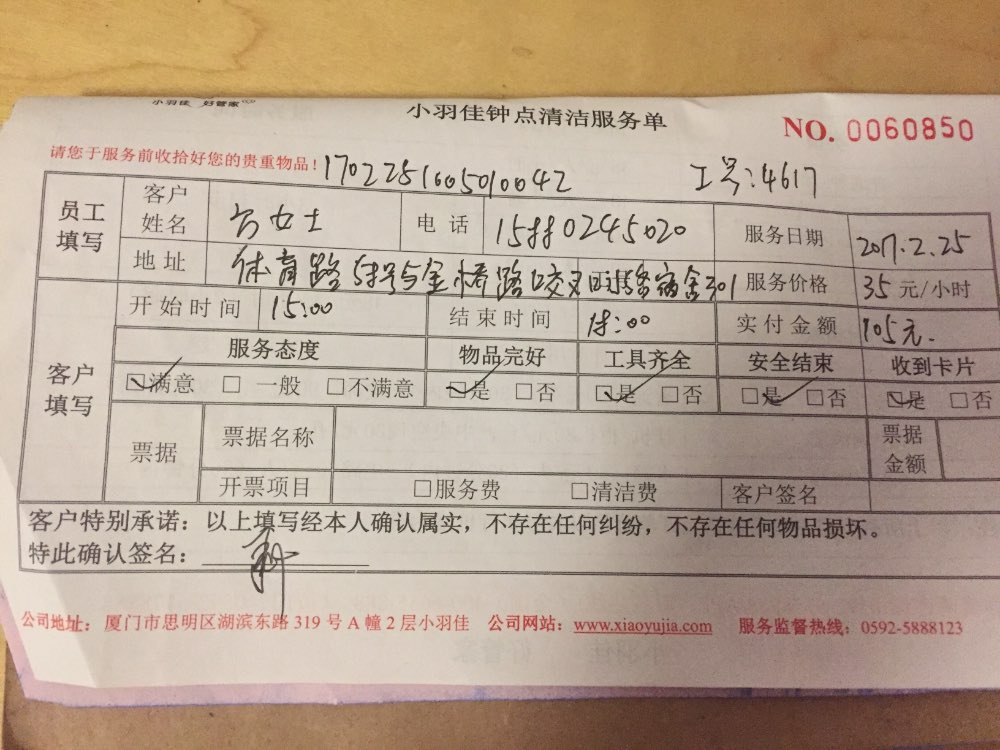 小羽佳 好管家
小羽佳钟点清洁服务单
NO. 0060850
请您于服务前收拾好您的贵重物品！ 1702251605010042 工号:4617
员工填写 客户姓名 女士 电话 15880245020 服务日期 2017.2.25
地址 体育路 号与金桥路交叉 宿舍301 服务价格 35 元/小时
客户填写 开始时间 15:00 结束时间 18:00 实付金额 105元.
服务态度 物品完好 工具齐全 安全结束 收到卡片
☑满意 □一般 □不满意 ☑是 □否 ☑是 □否 ☑是 □否 ☑是 □否
票据 票据名称 票据金额
开票项目 □服务费 □清洁费 客户签名
客户特别承诺：以上填写经本人确认属实，不存在任何纠纷，不存在任何物品损坏。
特此确认签名：
公司地址：厦门市思明区湖滨东路 319 号 A 幢 2 层小羽佳 公司网站：www.xiaoyujia.com 服务监督热线：0592-5888123